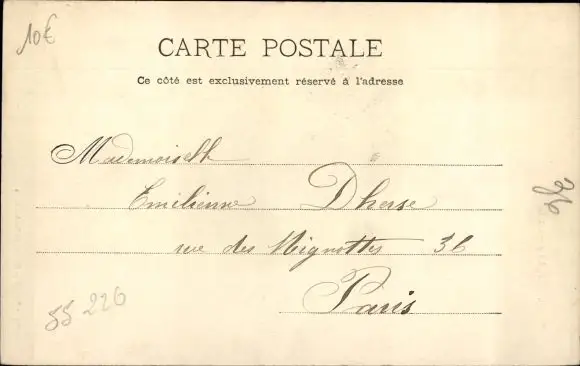 10€
CARTE POSTALE
Ce côté est exclusivement réservé à l'adresse
Mademoiselle
Emilienne Dherse
rue des Mignottes 36
Paris
55 226